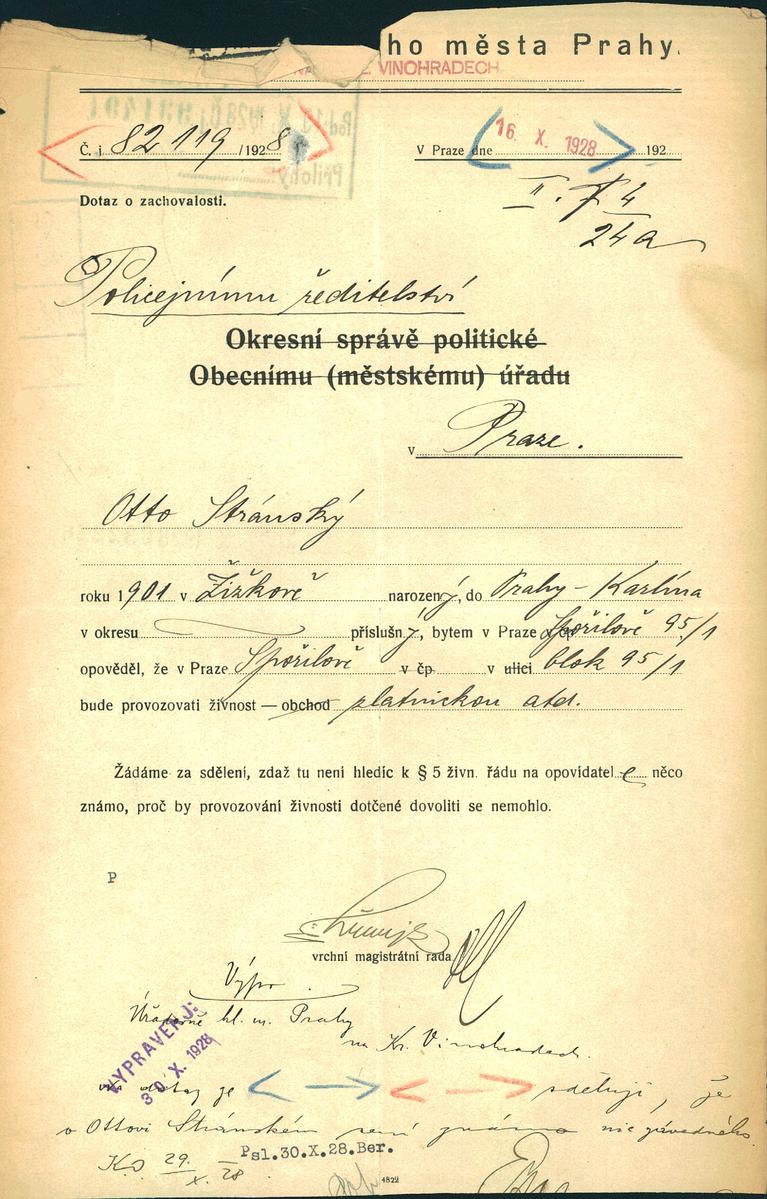 ho města Prahy.
VINOHRADECH
Č. i 82119 /1928
V Praze dne 16. X. 1928 192
Přílohy
Dotaz o zachovalosti.
II. 4
24a
Policejnímu ředitelství
Okresní správě politické
Obecnímu (městskému) úřadu
v Praze.
Otto Stránský
roku 1901 v Žižkově narozený, do Prahy - Karlína
v okresu příslušný, bytem v Praze Spořilově 95/1
opověděl, že v Praze Spořilově v čp. v ulici blok 95/1
bude provozovati živnost — obchod zlatnickou atd.
Žádáme za sdělení, zdaž tu není hledíc k § 5 živn. řádu na opovídatele něco
známo, proč by provozování živnosti dotčené dovoliti se nemohlo.
P
vrchní magistrátní rada.
Úřadovně hl. m. Prahy
na Kr. Vinohradech.
VYPRAVENO:
30. X. 1928
dotaz ze sděluji, že
o Ottovi Stránském není známo nic závadného.
29. X. 28
Psl.30.X.28.Ber.
4822